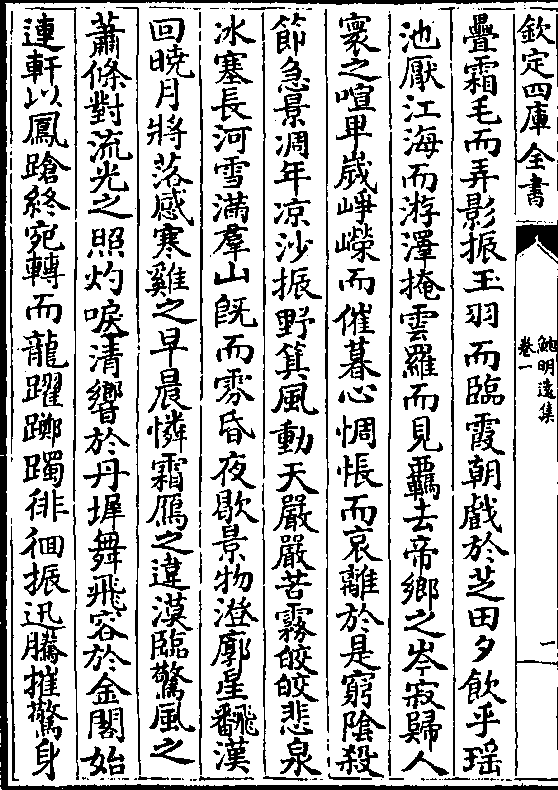 欽定四庫全書
鮑明遠集
卷一
疊霜毛而弄影振玉羽而臨霞朝戲於芝田夕飲乎瑶
池厭江海而游澤掩雲羅而見羈去帝鄉之岑寂歸人
寰之喧卑歲崢嶸而催暮心惆悵而哀離於是窮陰殺
節急景凋年凉沙振野箕風動天嚴嚴苦霧皎皎悲泉
冰塞長河雪滿羣山既而雰昏夜歇景物澄廓星翻漢
回曉月將落感寒雞之早晨憐霜鴈之違漠臨驚風之
蕭條對流光之照灼唳清響於丹墀舞飛容於金閣始
連軒以鳳蹌終宛轉而龍躍躑躅徘徊振迅騰摧驚身